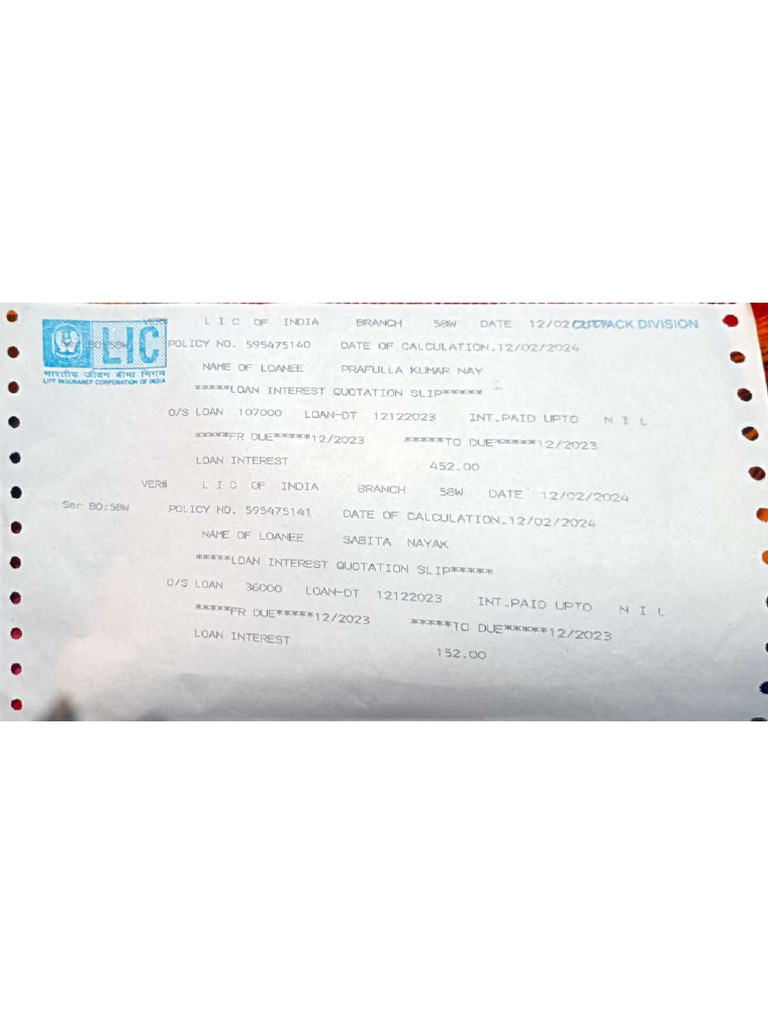 L I C OF INDIA BRANCH 58W DATE 12/02 CUTTACK DIVISION
BO:58W POLICY NO. 595475140 DATE OF CALCULATION.12/02/2024
LIC
भारतीय जीवन बीमा निगम
LIFE INSURANCE CORPORATION OF INDIA
NAME OF LOANEE PRAFULLA KUMAR NAY
*****LOAN INTEREST QUOTATION SLIP*****
O/S LOAN 107000 LOAN-DT 12122023 INT.PAID UPTO N I L
*****FR DUE*****12/2023 *****TO DUE*****12/2023
LOAN INTEREST 452.00
L I C OF INDIA BRANCH 58W DATE 12/02/2024
Ser BO:58W POLICY NO. 595475141 DATE OF CALCULATION.12/02/2024
NAME OF LOANEE SABITA NAYAK
*****LOAN INTEREST QUOTATION SLIP*****
O/S LOAN 36000 LOAN-DT 12122023 INT.PAID UPTO N I L
*****FR DUE*****12/2023 *****TO DUE*****12/2023
LOAN INTEREST 152.00